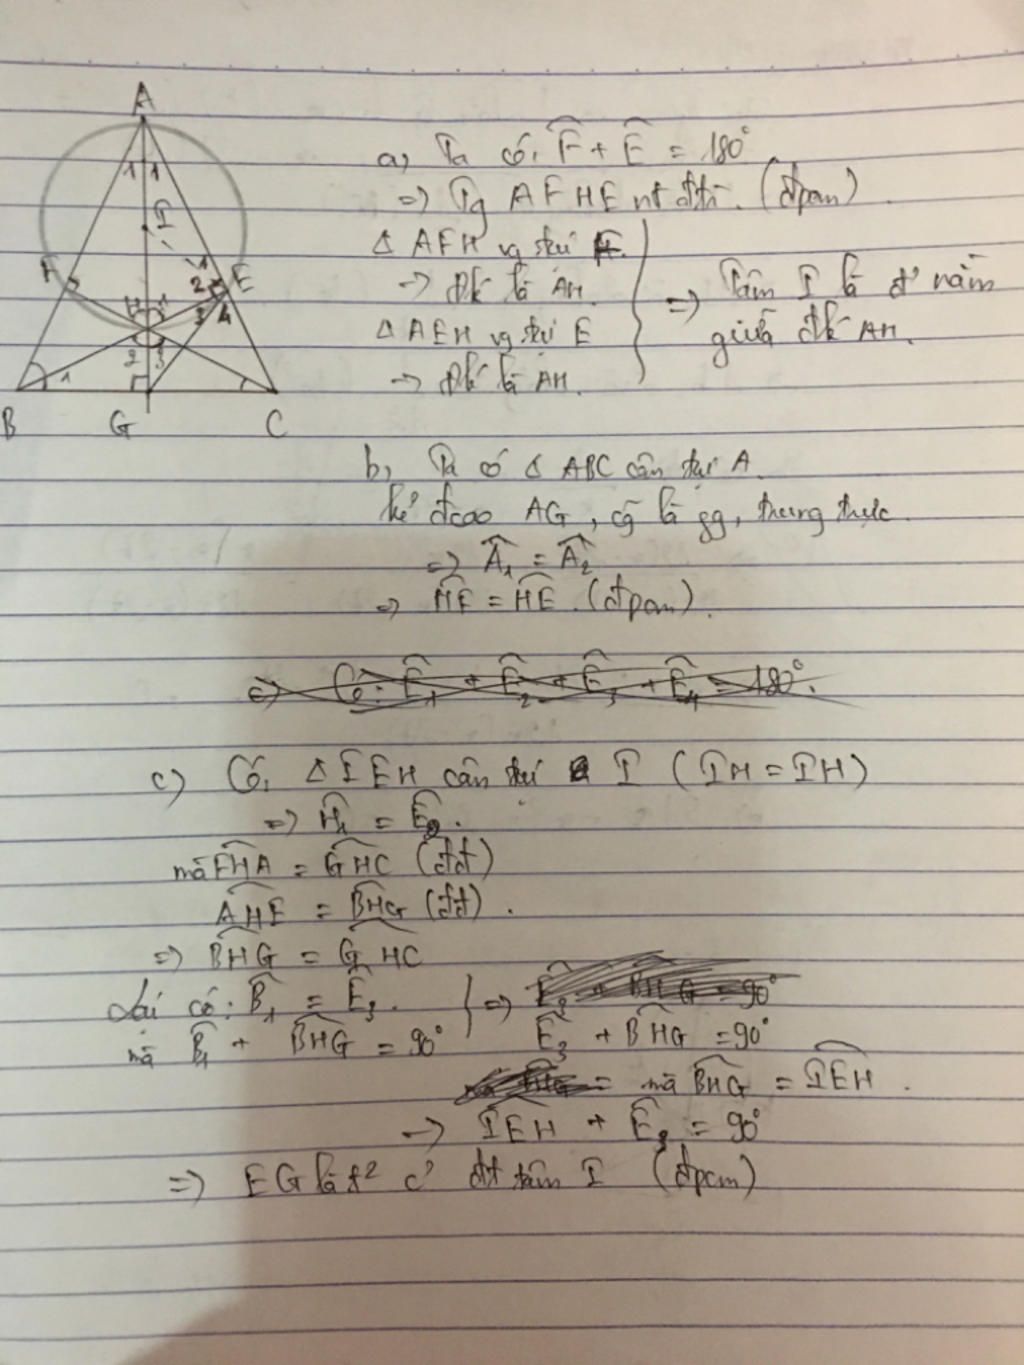 A
1 1
I
F
1
2
E
H 1
3 4
2 3
1
B
G
C
a, Ta có, F̂ + Ê = 180°
=) Tg AFHE nt đtr. (đpcm)
Δ AFH vg tại F.
→ đk là AH.
Δ AEH vg tại E
→ đk là AH.
=) Tâm I là đ' nằm
giữa đk AH.
b, Ta có Δ ABC cân tại A.
kẻ đcao AG, cg là pg, trung trực.
=) Â₁ = Â₂
=) HF = HE. (đpcm).
c) Có: Ê₁ + Ê₂ + Ê₃ + Ê₄ = 180°.
c) Có, Δ IEH cân tại I (IH = IH)
=) Ĥ₁ = Ê₂.
mà FHA = GHC (đđ)
AHE = BHG (đđ).
=) BHG = GHC
Lại có: B̂₁ = Ê₃.
mà B̂₁ + BHG = 90°
=) Ê₃ + BHG = 90°
Ê₃ + BHG = 90°
mà BHG = IEH.
→ IEH + Ê₃ = 90°
=) EG là t² c' đt tâm I (đpcm)